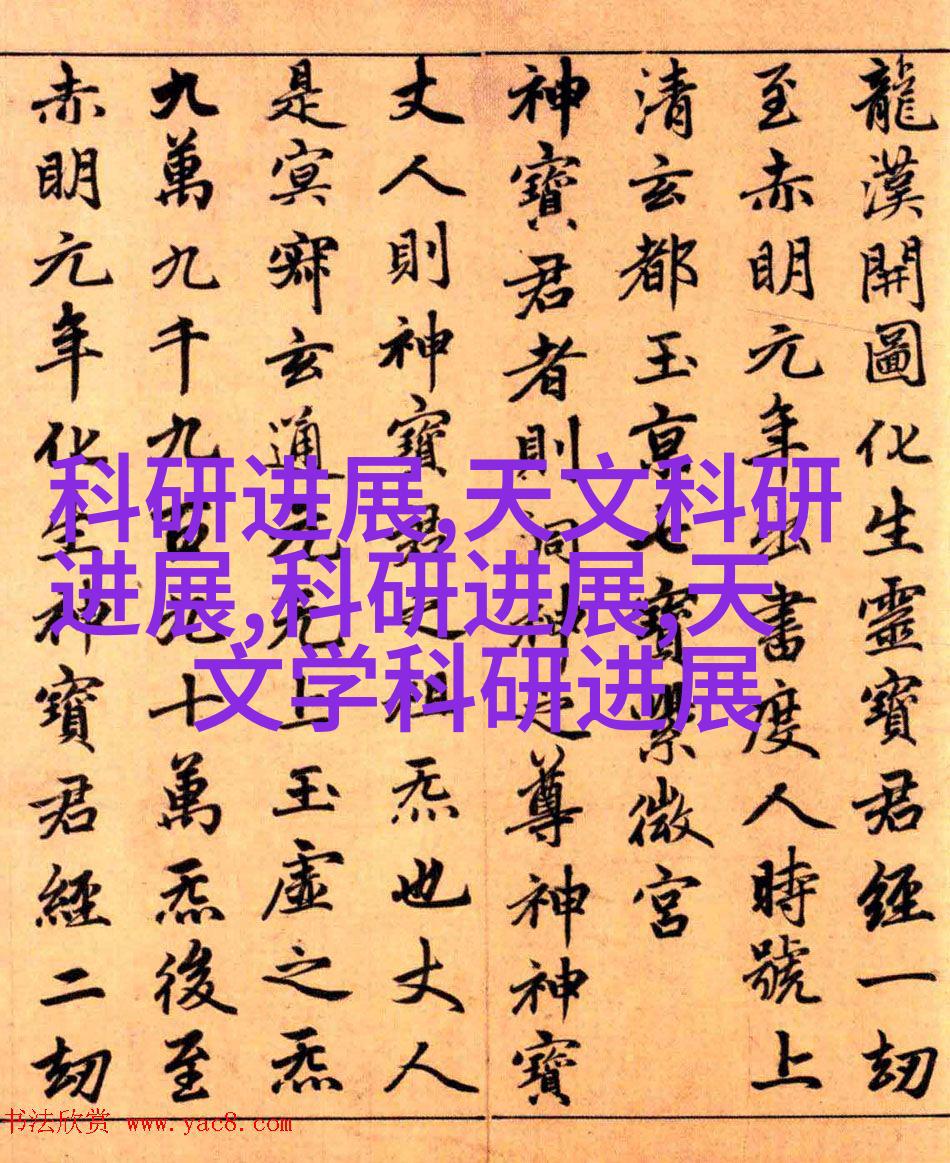 龍漢開圖化生靈寶君經一劫
至赤明元年出書度人時號上
清玄都玉京七寶紫微宮
神寶君者則洞神之尊神神寶
丈人則神寶君之祖炁也丈人
是寘寂玄通元无上玉虛之炁
九萬九千九百九十萬炁後至
赤明元年化生神寶君經二劫
科研进展,天文科研
进展,科研进展,天
文学科研进展
书法欣赏 www.yac8.com